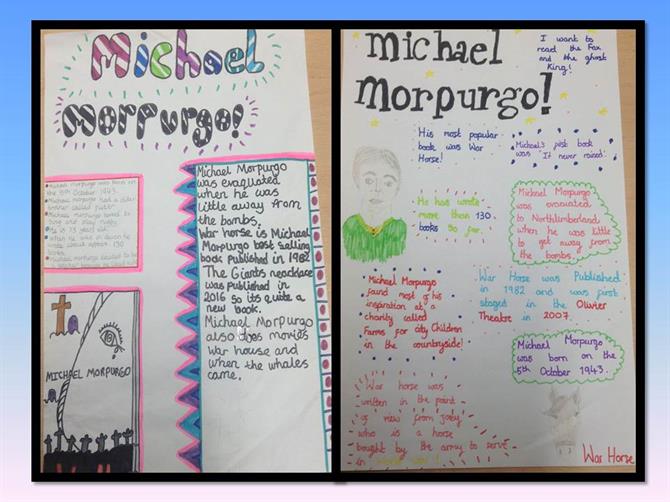 Michael
Morpurgo!
Michael morpurgo was born on
the 5th October 1943.
Michael morpurgo had a older
brother called pieter.
Michael morpurgo loved to
sing and play rugby.
He is 73 years old.
when he was in devon he
wrote about approx 130
books.
Michael morpurgo decided to be
Michael Morpurgo
was evaquated
when he was
little away from
the bombs.
War horse is Michael
Morpurgo best selling
book published in 1982
The Giants necklace
was published in
2016 so its quite a
new book.
Michael Morpurgo
also does movies
War house and
when the whales
came.
MICHAEL MORPURGO
michael
morpurgo!
I want to
read the Fox
and the ghost
King!
His most popular
book was War
Horse!
Michael's first book
was 'It never rained'
He has wrote
more than 130
books so far.
Michael Morpurgo
was evacuated
to Northumberland
when he was little
to get away from
the bombs.
Michael Morpurgo
found most of his
inspiration at a
charity called
Farms for city Children
in the countryside!
War Horse was Published
in 1982 and was first
staged in the Olivier
Theatre in 2007.
Michael Morpurgo
was born on the
5th October 1943.
War horse was
written in the point
of view from Joey
who is a horse
bought by the army to serve
in
War Horse